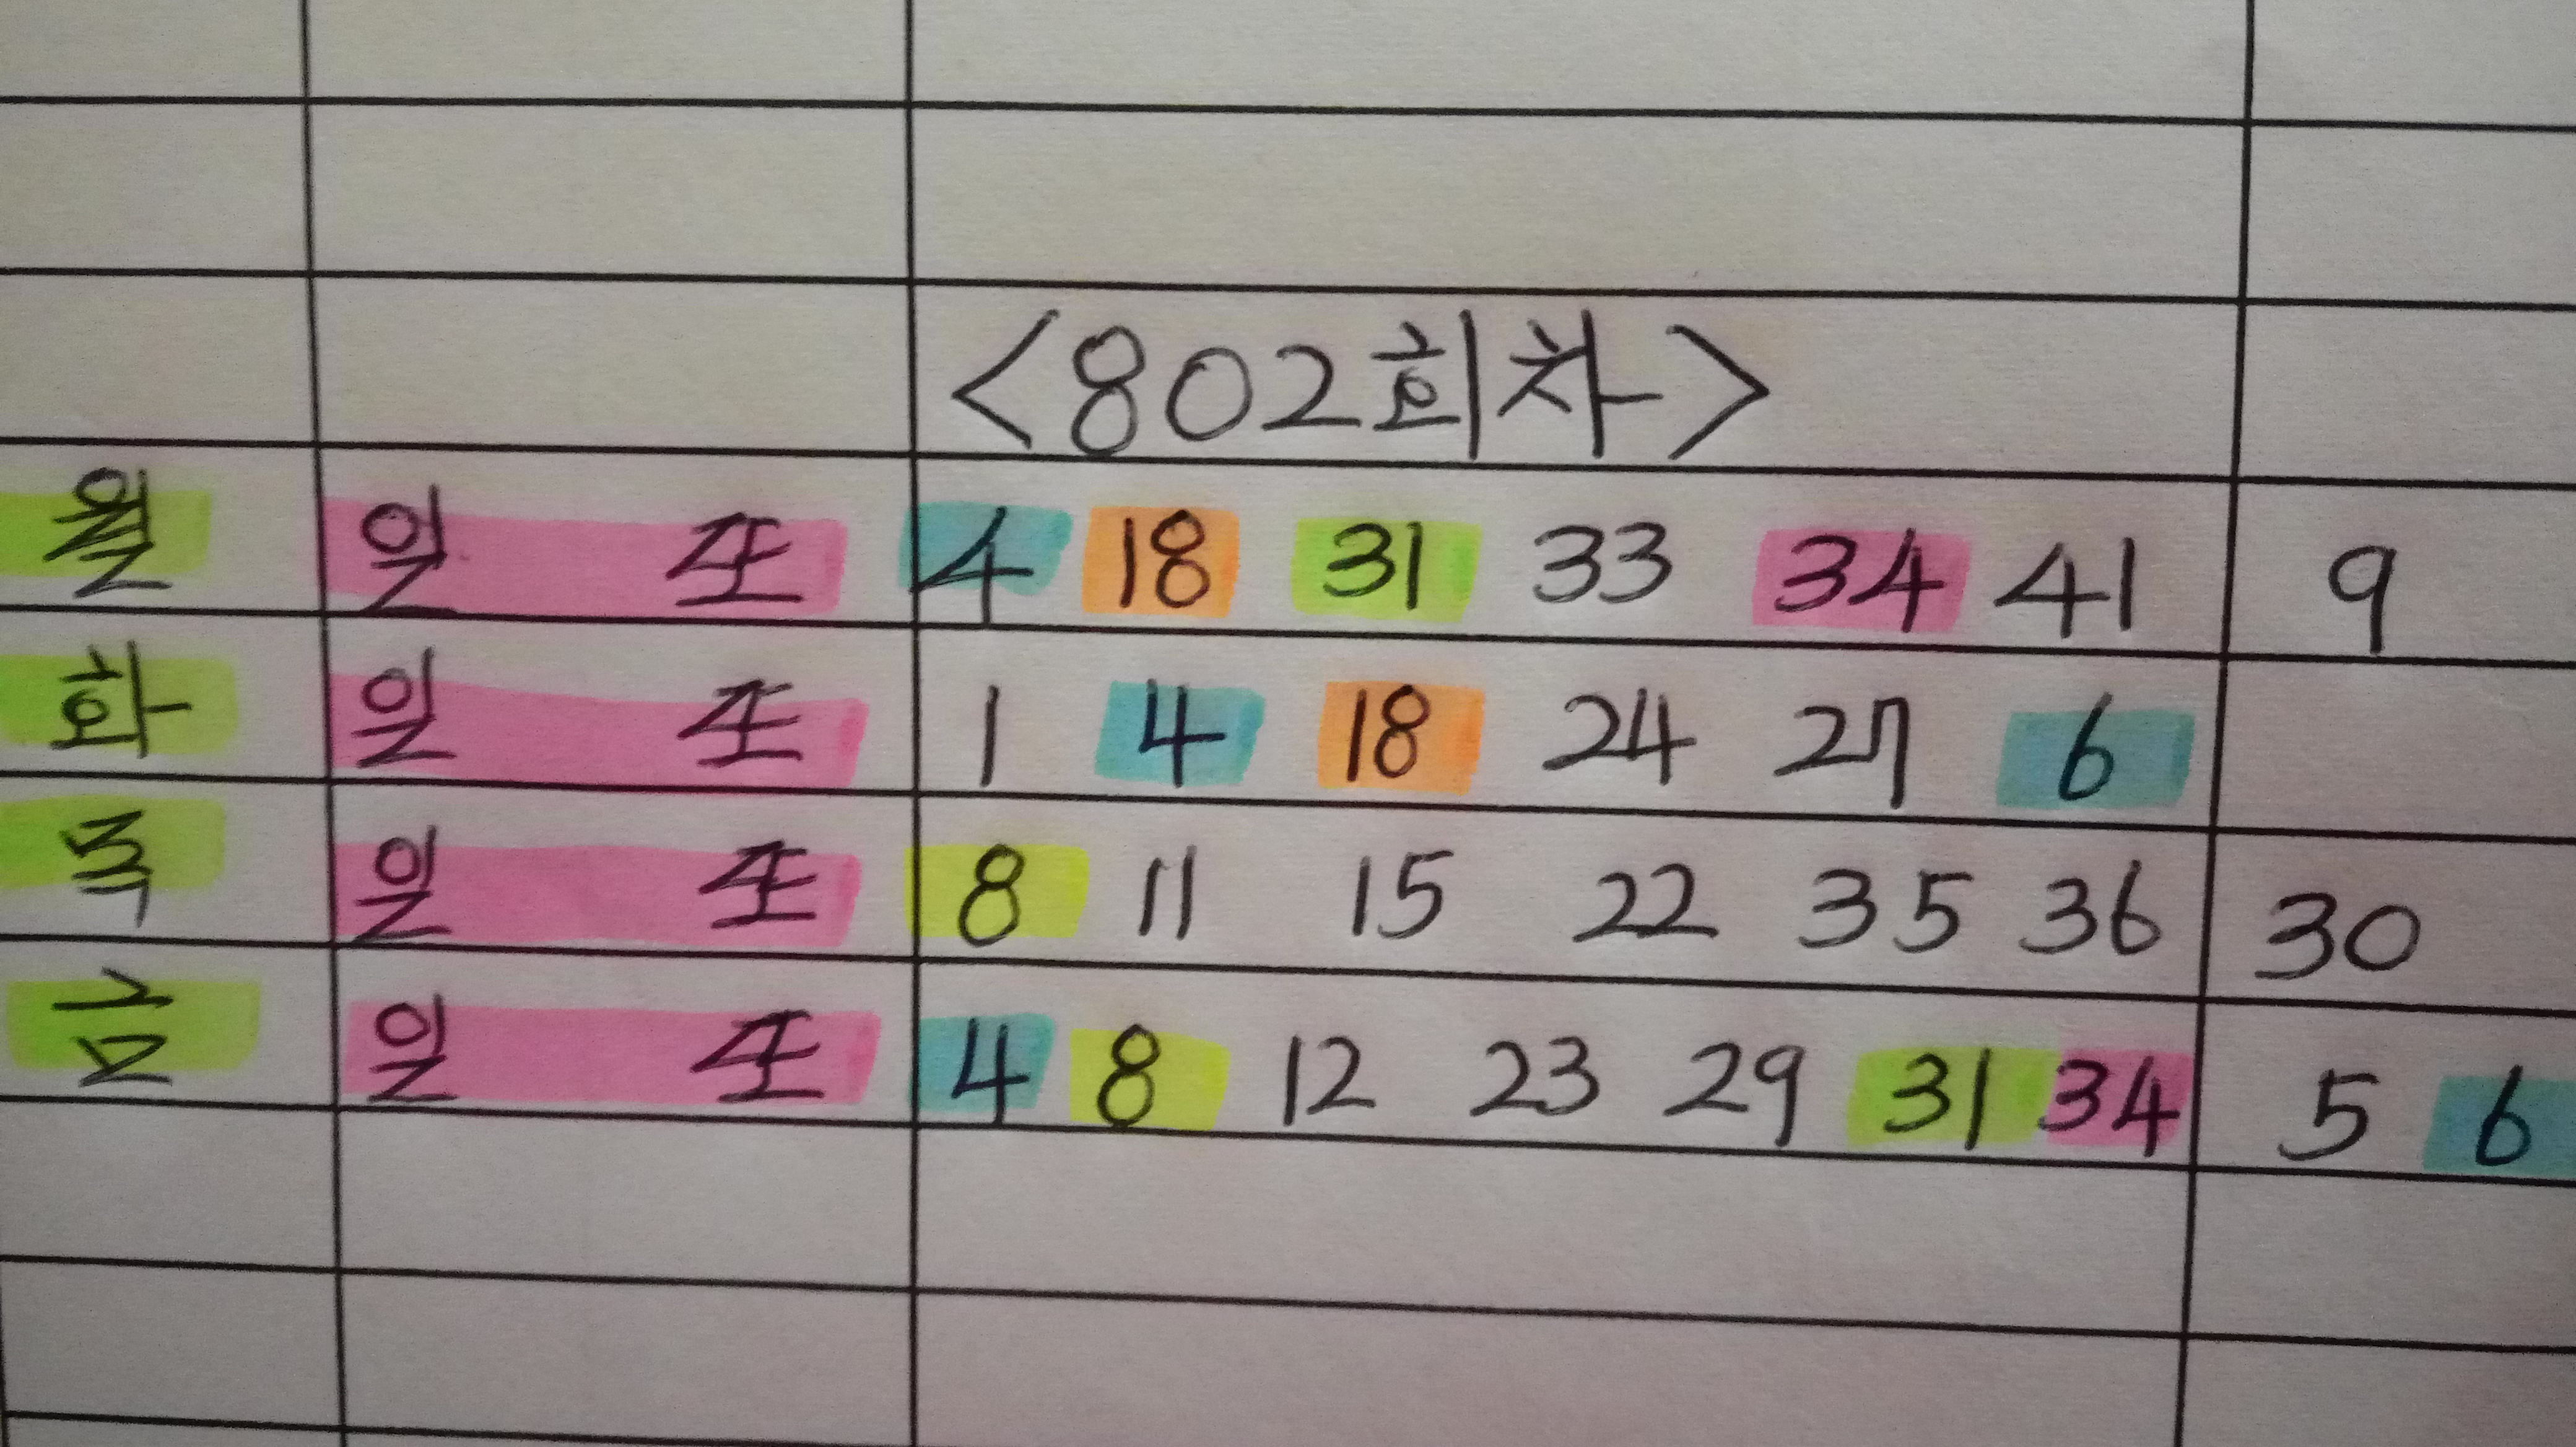 <802회차>
월 일 또 4 18 31 33 34 41 9
화 일 또 1 4 18 24 27 6
목 일 또 8 11 15 22 35 36 30
금 일 또 4 8 12 23 29 31 34 5 6